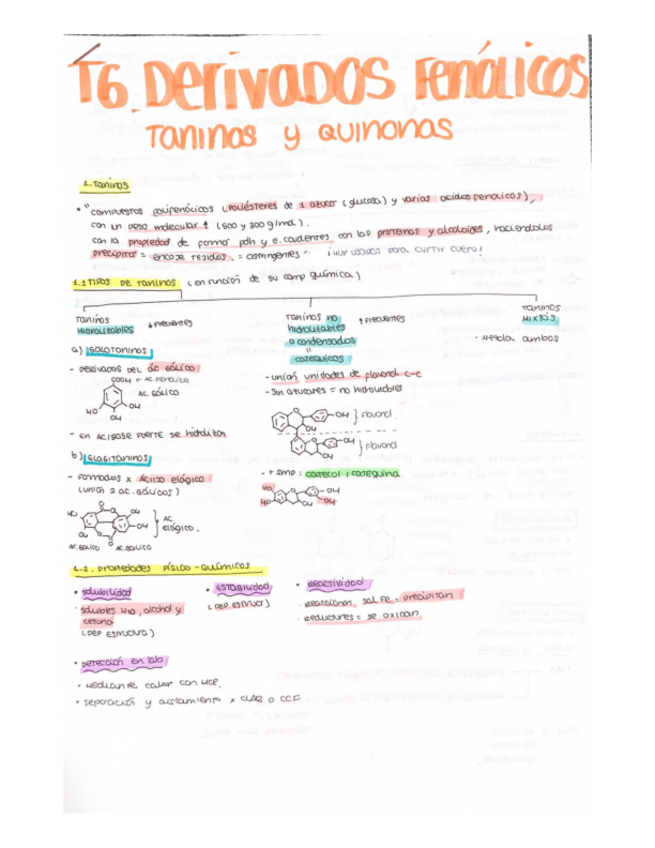 T6. Derivados Fenólicos
Taninos y Quinonas
1. Taninos
• "compuestos polifenólicos (poliésteres de 1 azúcar (glucosa) y varios ácidos fenólicos),
con un peso molecular ↑ (500 y 300 g/mol).
con la propiedad de formar pdh y e. covalentes con las proteínas y alcaloides, haciéndolos
precipitar = encoge tejidos. = astringentes" ¡muy usados para curtir cuero!
1.1 Tipos de Taninos (en función de su comp química)
Taninos hidrolizables ↓ frecuentes
Taninos no hidrolizables o condensados = catéquicos ↑ frecuentes
Taninos mixtos
- mezcla ambos
a) Galotaninos
- Derivados del ác gálico
COOH ← ac. fenólico
Ac. gálico
HO
OH
OH
- En ac/base fuerte se hidroliza
b) Elagitaninos
- Formados x Ácido elágico
(unión 2 ac. gálicos)
HO
OH
OH
Ac elágico.
Ac. gálico Ac. gálico
- unión unidades de flavanol C-C
- Sin azucares = no hidrolizables
OH } Flavanol.
OH
OH } Flavanol
OH
- + imp: catecol / catequina
HO
HO
OH
OH
OH
1.2. Propiedades Físico-químicas
• Solubilidad
solubles H2O, alcohol y
cetona
(Dep estructura)
• Estabilidad
(Dep estruct)
• Reactividad
Reaccionan sal Fe = precipitan
Reductores = se oxidan
• Detección en lab
• Mediante calor con HCl.
• separación y aislamiento x CLAR o CCF